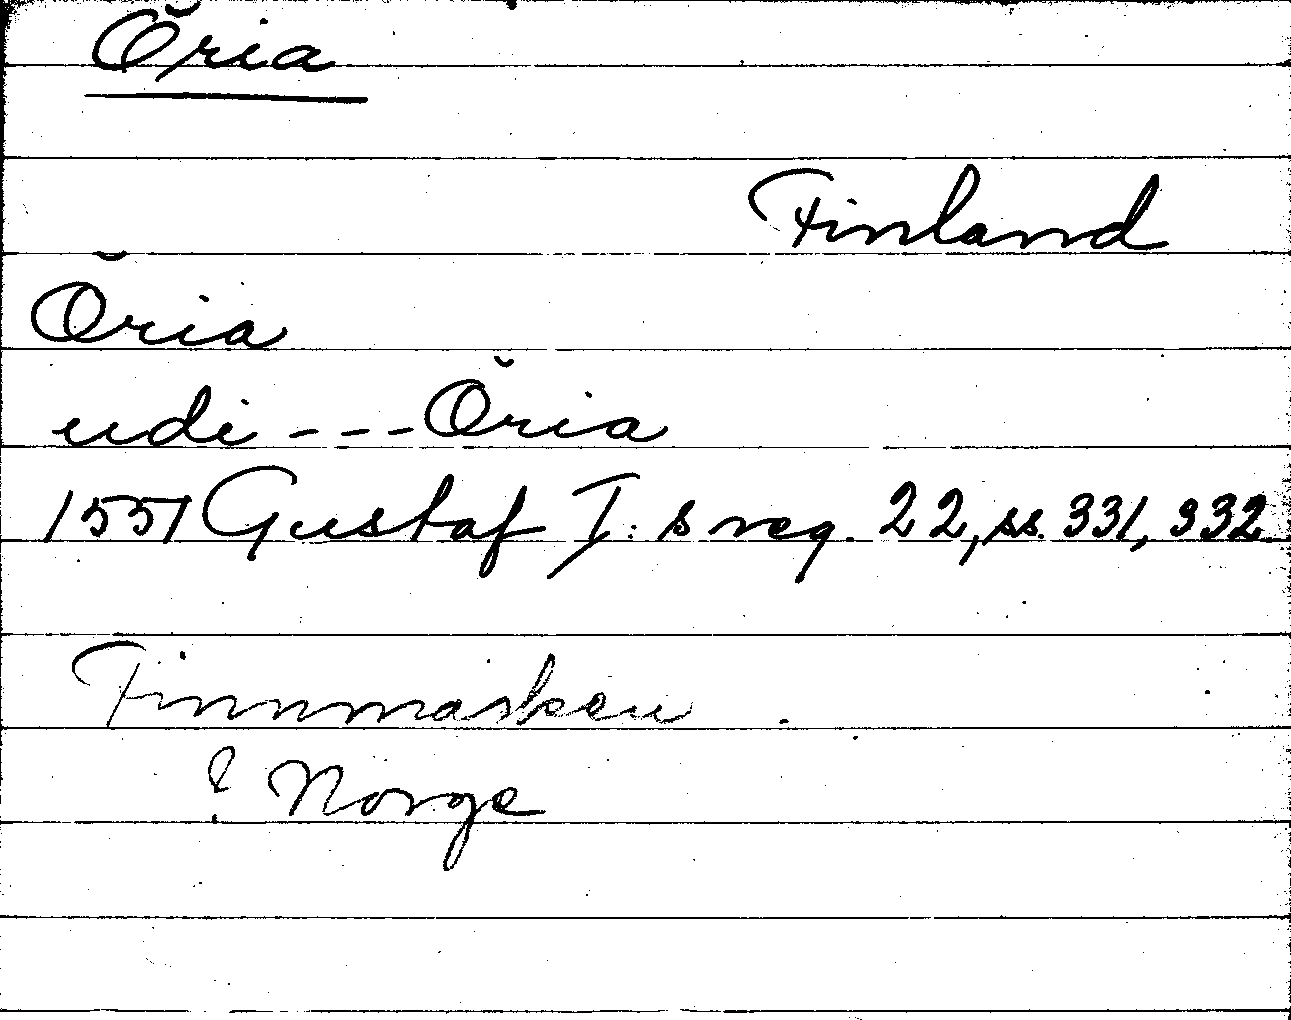 Öria
Finland
Öria
udi --- Öria
1551 Gustaf I:s reg. 22, ss. 331, 332
Finnmarken
? Norge